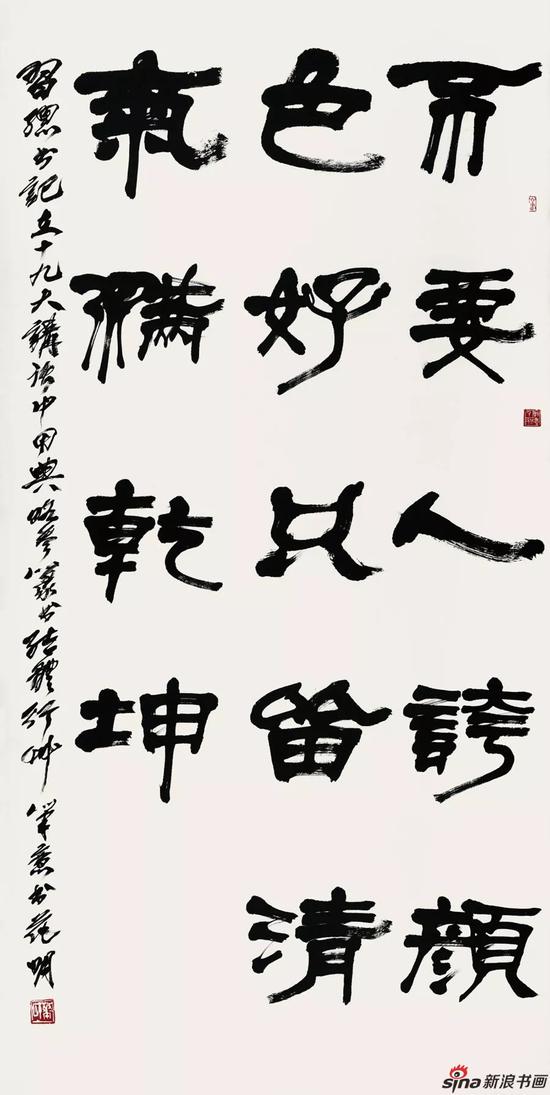 不要人誇顔
色好只留清
氣滿乾坤
習總書記在十九大講話中用典略參篆書結體行草筆意書范明
sina新浪书画